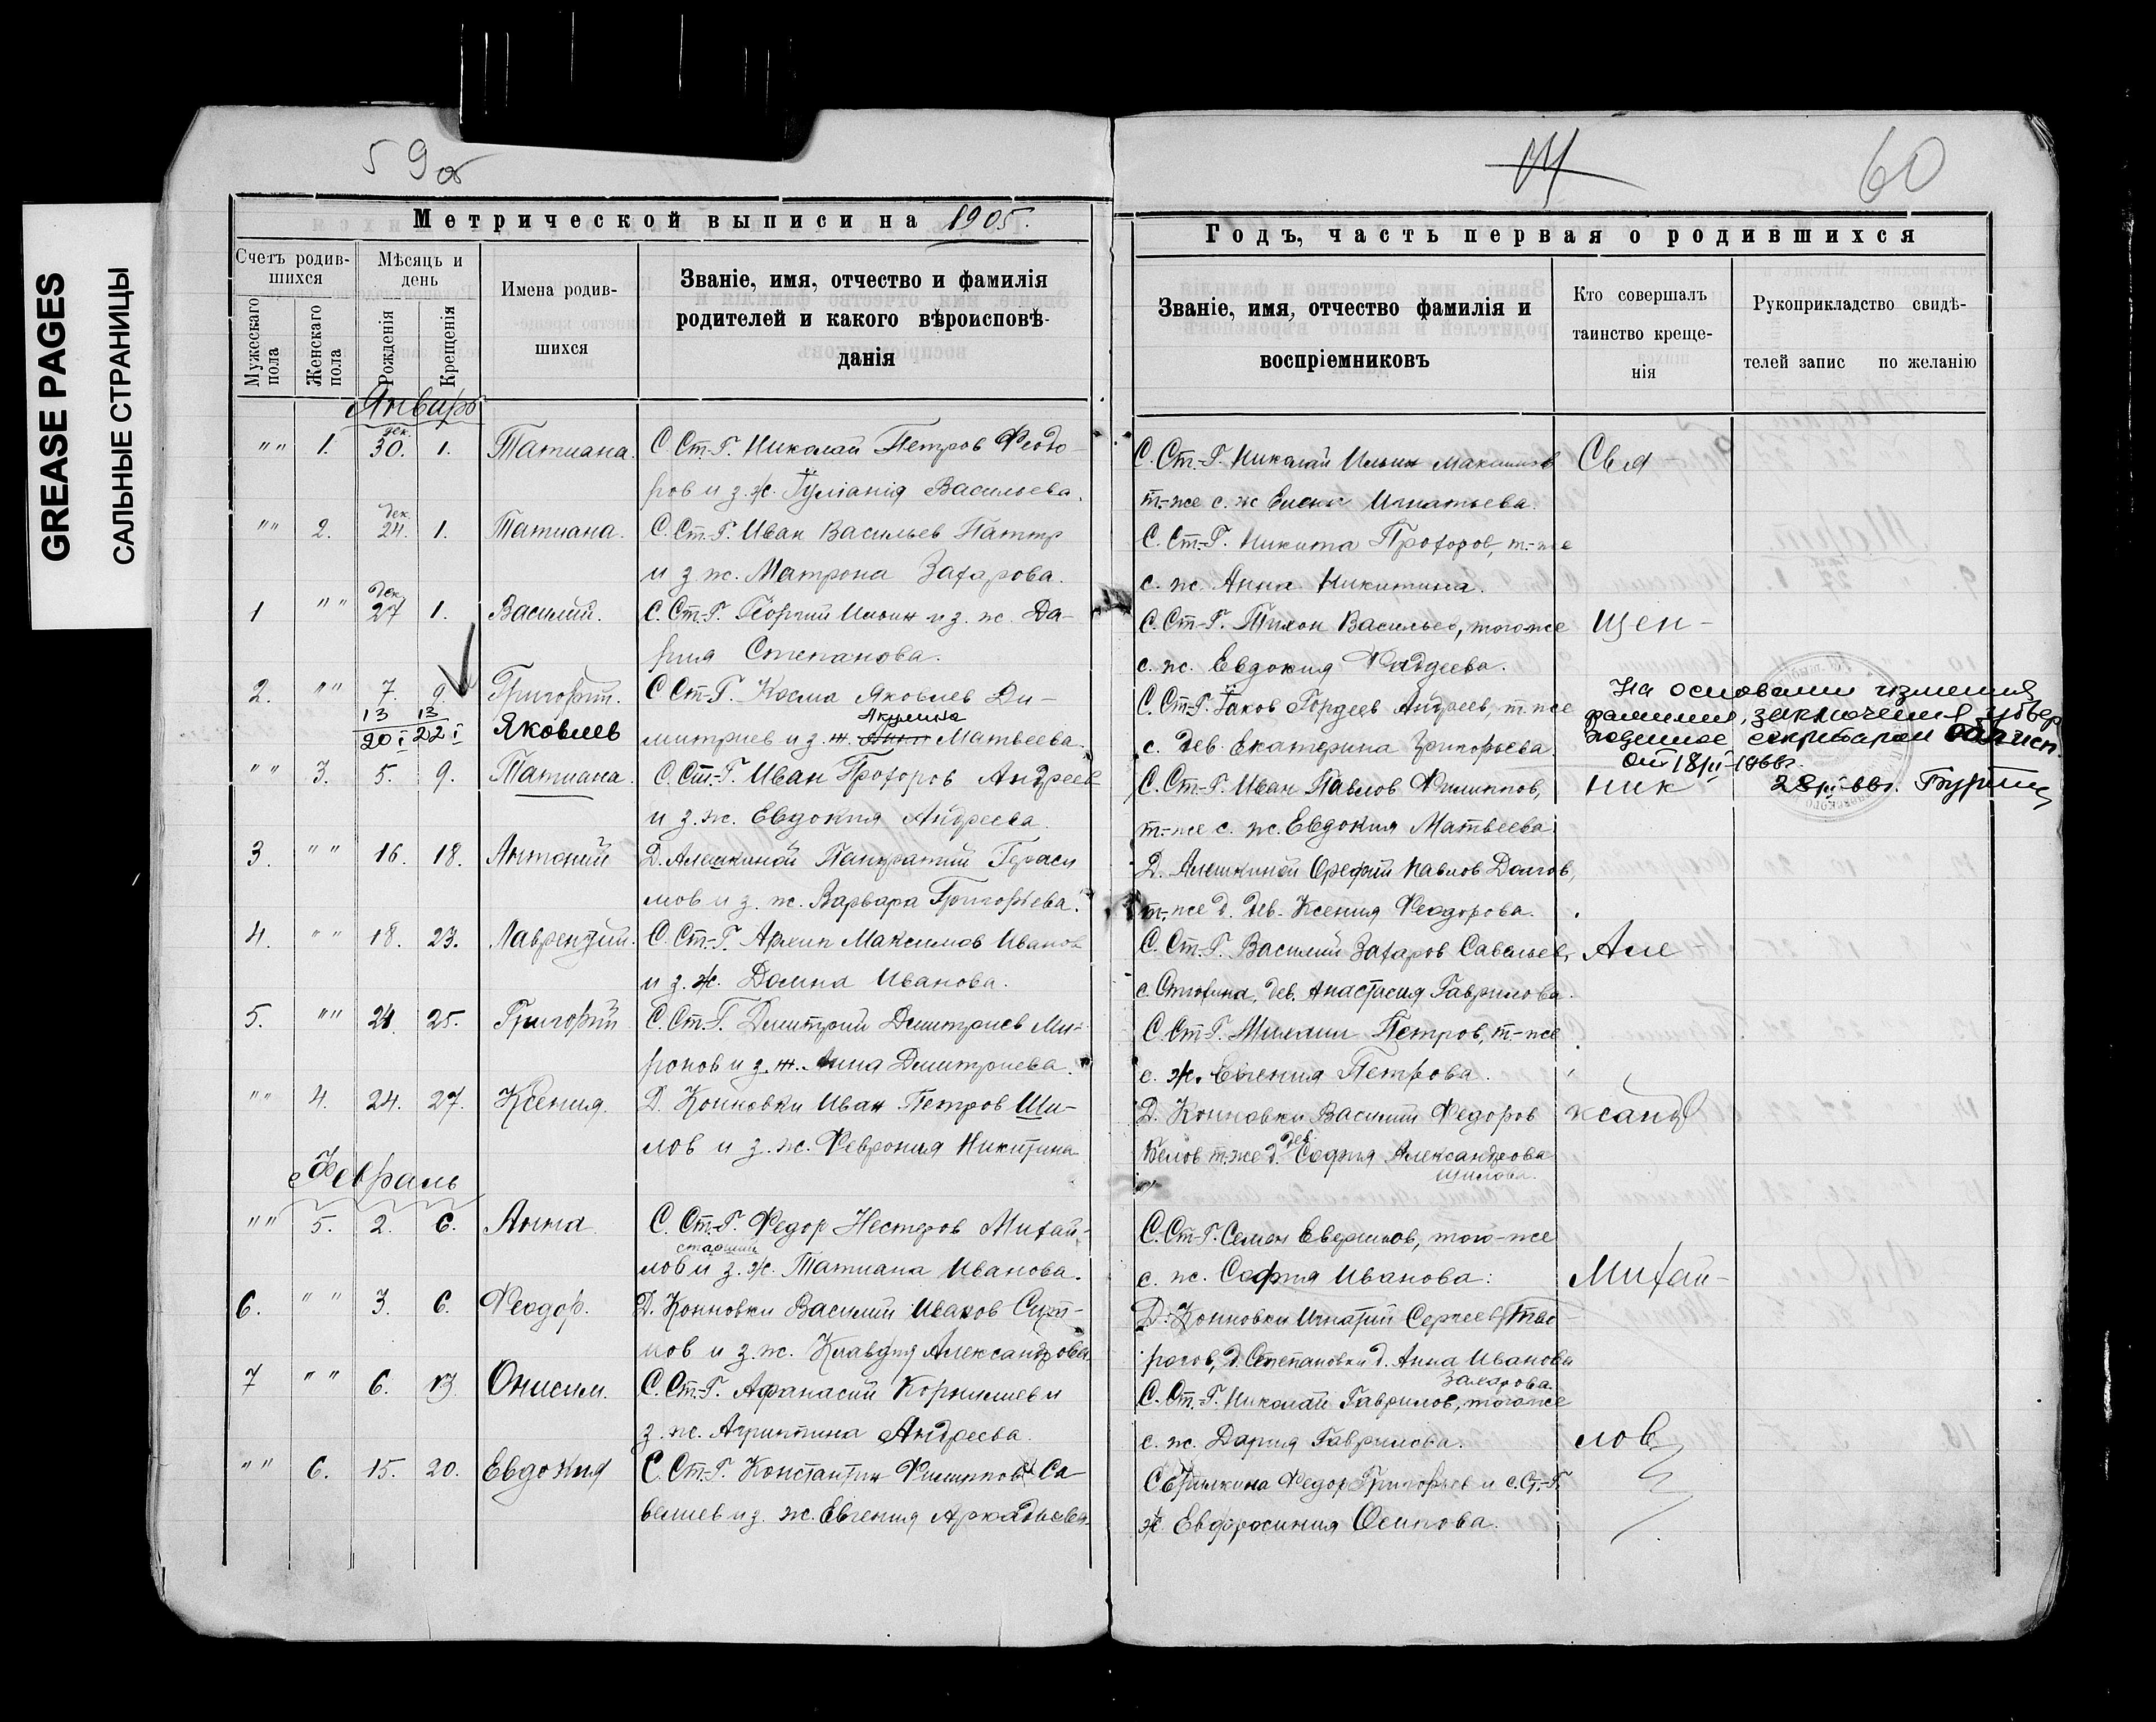 GREASE PAGES
САЛЬНЫЕ СТРАНИЦЫ
59об
60
Метрической выписи на 1905.
Счетъ родив-
шихся
Мужескаго
пола
Женскаго
пола
Мѣсяцъ и
день
Рожденія
Крещенія
Имена родив-
шихся
Званіе, имя, отчество и фамилія
родителей и какого вѣроисповѣ-
данія
Январь
"" 1. дек. 30. 1. Татиана. С. Ст.-Г. Николай Петров Феодо-
ров и з. ж. Іуліанія Васильева.
"" 2. дек. 24. 1. Татиана. С. Ст.-Г. Иван Васильев
и з. ж. Матрона Захарова.
1 "" дек. 27 1. Василий. С. Ст.-Г. Георгий Ильин и з. ж. Да-
рия Степанова.
2. "" 7. 9. Григорий. С. Ст.-Г. Косма Яковлев Ди-
13 13
20 I 22 I Яковлев
Акулина
митриев и з. ж. Анна Матвеева.
"" 3. 5. 9. Татиана. С. Ст.-Г. Иван Прохоров Андреев
и з. ж. Евдокия Андреева.
3. "" 16. 18. Антоний Д. Алешкиной Панкратий Гераси
мов и з. ж. Варвара Григорьева.
4. "" 18. 23. Лаврентий. С. Ст.-Г. Архип Максимов Иванов
и з. ж. Домна Иванова.
5. "" 24 25. Григорий С. Ст.-Г. Димитрий Димитриев Ми-
ронов и з. ж. Анна Димитриева.
"" 4. 24. 27. Ксения. Д. Конновки Иван Петров Ши-
лов и з. ж. Феврония Никитина
Февраль
"" 5. 2. 6. Анна С. Ст.-Г. Федор Нестеров Михай-
старший
лов и з. ж. Татиана Иванова.
6. "" 3. 6. Феодор. Д. Конновки Василий Иванов
нов и з. ж. Клавдия Александрова
7 "" 6. 13. Онисим. С. Ст.-Г. Афанасий Корнилиев и
з. ж. Агриппина Андреева.
"" 6. 15. 20. Евдокия С. Ст.-Г. Константин Филиппов Са-
велиев и з. ж. Евгения Аркадьева
Годъ, часть первая о родившихся
Званіе, имя, отчество фамилія и
воспріемниковъ
Кто совершалъ
таинство креще-
нія
Рукоприкладство свидѣ-
телей запис по желанію
С. Ст.-Г. Николай Ильин Максимов Свя-
т.-же с. ж. Елена Игнатьева.
С. Ст.-Г. Никита Прохоров, т.-же
с. ж. Анна Никитина.
С. Ст.-Г. Тихон Васильев, того-же щен-
с. ж. Евдокия Фаддеева.
С. Ст.-Г. Іаков Гордеев Андреев, т. же
с. дев. Екатерина Григорьева
На основании изменения
фамилии, заключения, утвер
жденное секретарем облисп.
от 18/II-1966г.
С. Ст.-Г. Иван Павлов Филиппов, ник
т.-же с. ж. Евдокия Матвеева
Д. Алешкиной Орефий Павлов Долгов,
т.-же д. дев. Ксения Феодорова.
С. Ст.-Г. Василий Захаров Савельев, Але-
дев. Анастасия Гаврилова.
С. Ст.-Г. Михаил Петров, т.-же
с. ж. Евгения Петрова.
Д. Конновки Василий Федоров ксанд
дев.
Белов т.-же д. София Александрова
Шилова.
С. Ст.-Г. Семен Евгеньев, того-же
с. ж. София Иванова: Михай-
Д. Конновки Игнатий Сергеев
д. Степановки д. Анна Иванова
Захарова.
С. Ст.-Г. Николай Гаврилов, того-же
с. ж. Дария Гаврилова. лов
Федор Григорьев и с. Ст.-Г.
ж. Евфросиния Осипова.